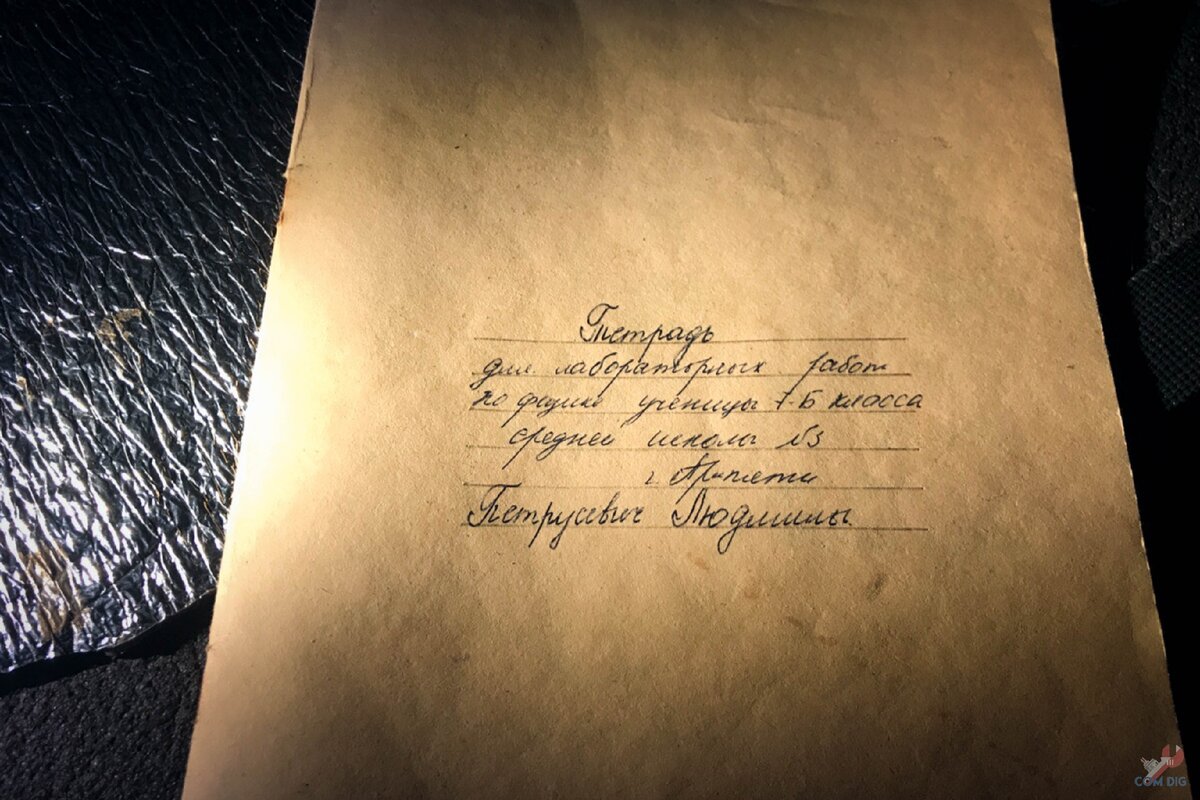 Тетрадь
для лабораторных работ
по физике ученицы 7-Б класса
средней школы №3
г. Припяти
Петрусевич Людмилы
COM DIG